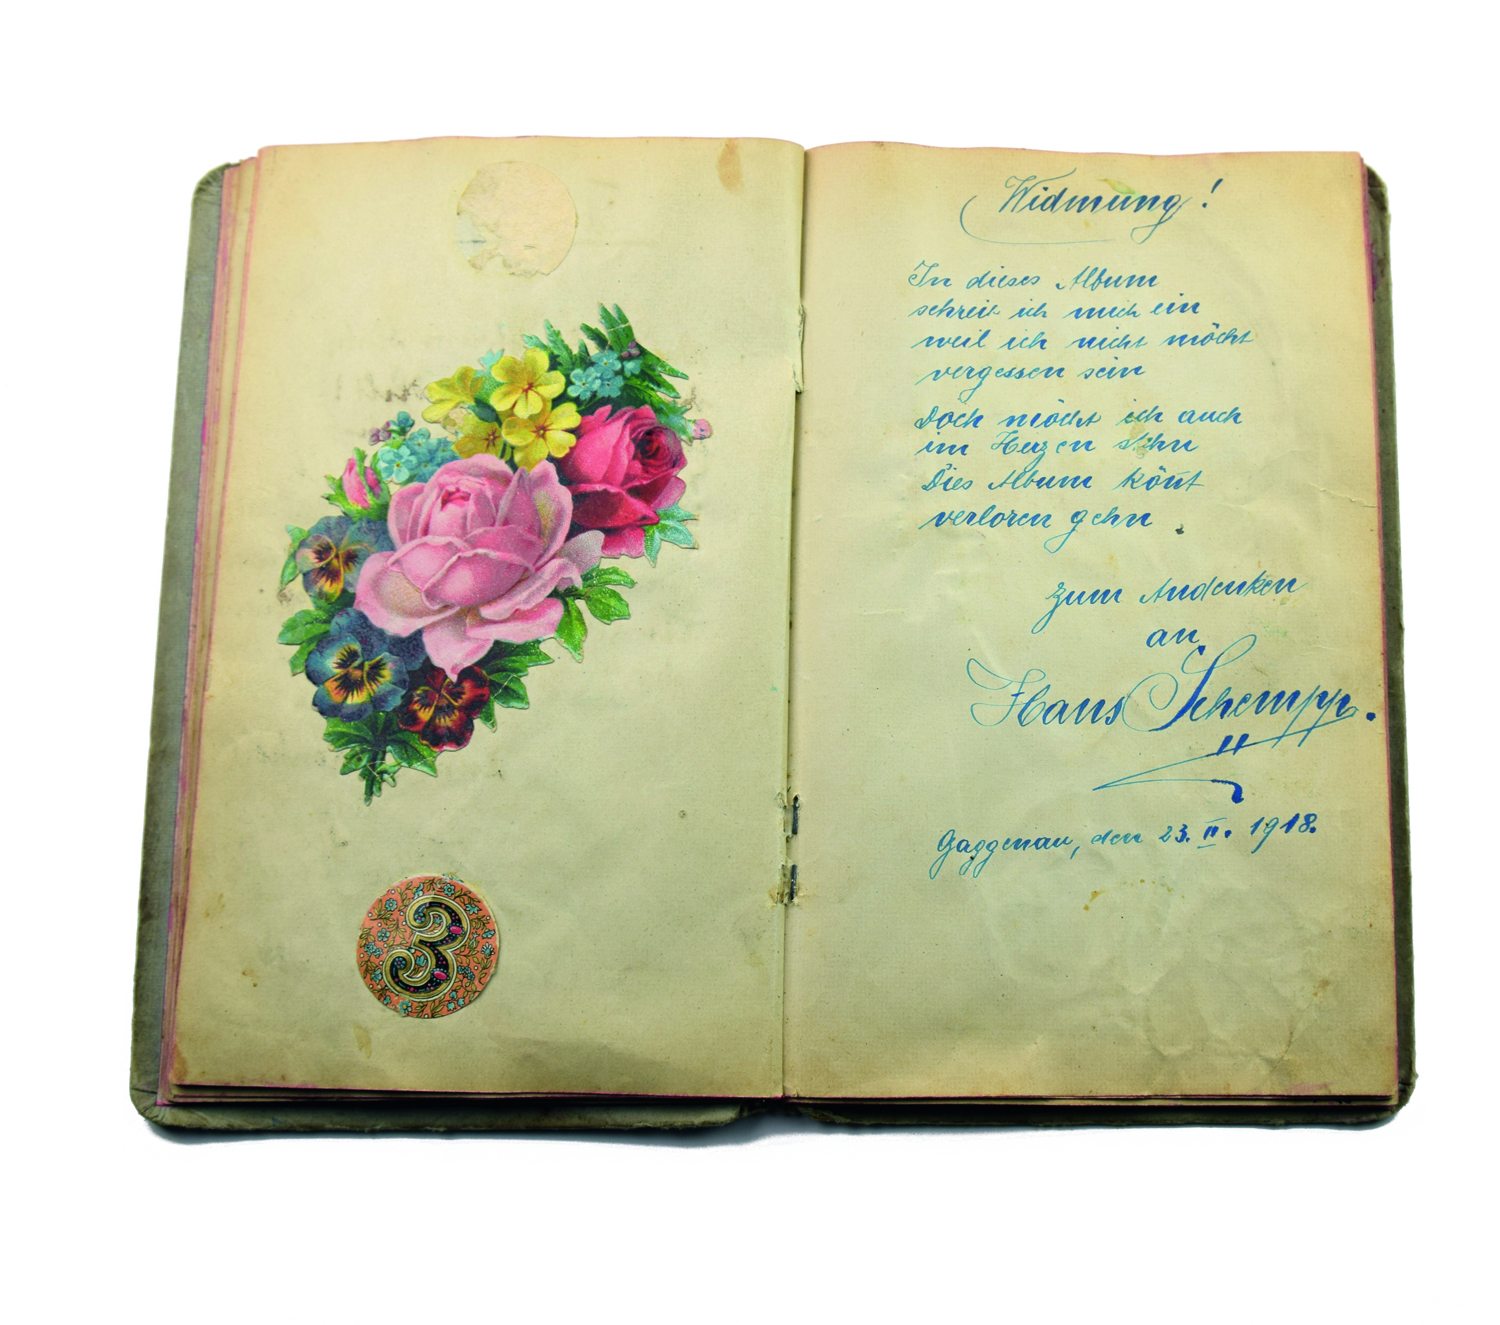 3
Widmung!
In dieses Album
schreib ich mich ein
weil ich nicht möcht
vergessen sein
Doch möcht ich auch
im Herzen stehn
Dies Album könt
verloren gehn.
Zum Andenken
an
Hans Schempp.
Gaggenau, den 23. II. 1918.